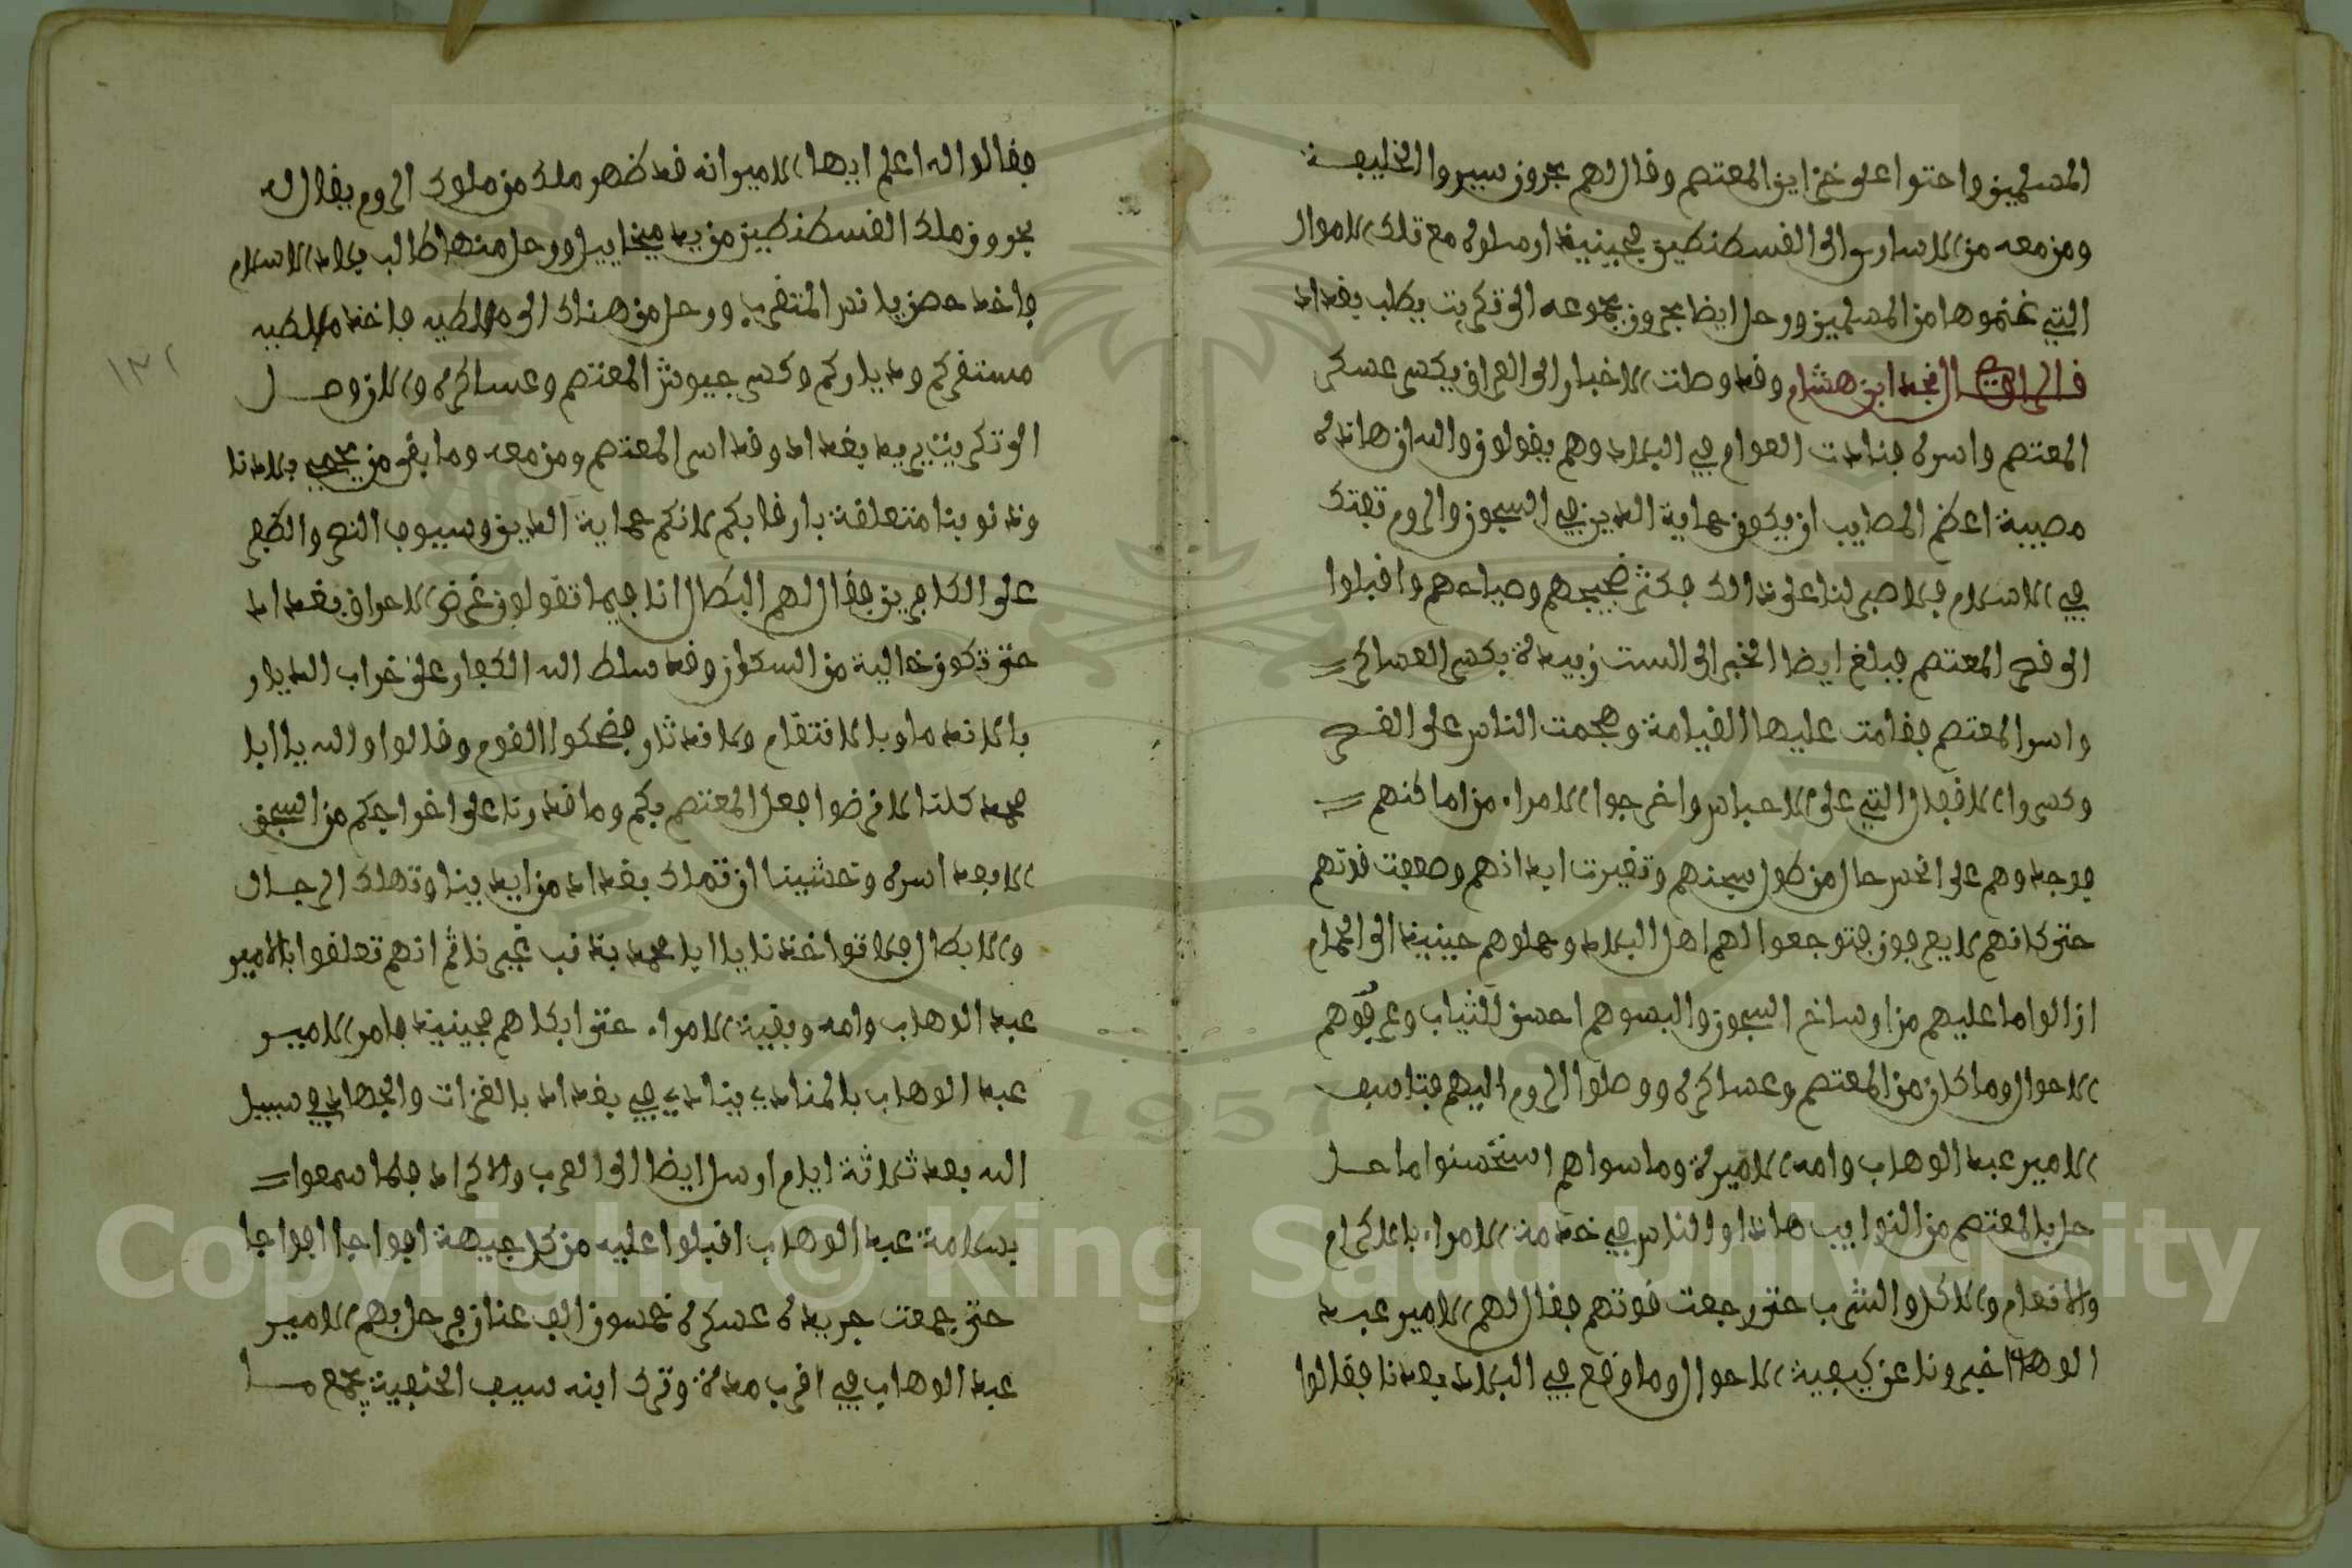 المسلمين واحتوا على خزاين المعتصم وقال لهم بحرون سيروا الخليفة
ومن معه من الاسارى الى القسطنطين فحينيذ ارسلوه مع تلك الاموال
التي غنموها من المسلمين ورحل ايضا بحرون بجموعه الى تكريت يطلب بغداد
قال الراوي النجد ابن هشام وقد وصلت الاخبار الى العراق بكسر عسكر
المعتصم واسره فنادت العوام في البلاد وهم يقولون والله ان هاذه
مصيبة اعظم المصايب ان يكون حماية الدين في السجون والروم تفتك
في الاسلام فلا صبر لنا على ذالك فكثر ضجيجهم وصياحهم واقبلوا
الى قصر المعتصم فبلغ ايضا الخبر الى الست زبيدة بكسر العساكر
واسر المعتصم فقامت عليها القيامة وهجمت الناس على القصر
وكسروا الاقفال التي على الاحباس واخرجوا الامراء من اماكنهم
فوجدوهم على انحس حال من طول سجنهم وتغيرت ابدانهم وضعفت قوتهم
حتى كانهم لا يعرفون فتوجعوا لهم اهل البلاد وحملوهم حينيذ الى الحمام
ازالوا ما عليهم من اوساخ السجون والبسوهم احسن الثياب وعرفوهم
الاحوال وما كان من المعتصم وعساكره ووصلوا الروم اليهم فتاسف
الامير عبد الوهاب وامه الاميرة وما سواهم استحسنوا ما حل
حل بالمعتصم من النوايب هاذا والناس في خدمة الامراء بالاكرام
والانعام والاكل والشرب حتى رجعت قوتهم فقال لهم الامير عبد
الوهاب اخبرونا عن كيفية الاحوال وما وقع في البلاد بعدنا فقالوا
فقالوا له اعلم ايها الامير انه قد ظهر ملك من ملوك الروم يقال له
بحرون ملك القسطنطين من يد ميخاييل ورحل منها طالب بلاد الاسلام
فاخذ حصن يانس المتقرب ورحل من هناك الى ملطيه فاخذ ملطيه
مستقركم ودياركم وكسر جيوش المعتصم وعساكره والان وصل
الى تكريت يريد بغداد وقد اسر المعتصم ومن معه وما بقى من يحمي بلادنا
وذنوبنا متعلقة بارقابكم لانكم حماية الدين وسيوف النصر والظفر
على الكافرين فقال لهم البطال انا فيما تقولون غرضي لاحراق بغداد
حتى تكون خالية من السكان وقد سلط الله الكفار على خراب الديار
بالاندماد بالانتقام ولاخذ ثار فضحكوا القوم وقالوا والله يا ابا
محمد كلنا لانرضوا فعل المعتصم بكم وما قدرنا على اخراجكم من السجن
الا بعد اسره وخشينا ان تملك بغداد من ايدينا وتهلك الرجال
والابطال فلا تواخذنا يا ابا محمد بذنب غيرنا ثم انهم تعلقوا بالامير
عبد الوهاب وامه وبقية الامراء حتى ابكاهم فحينيذ فامر الامير
عبد الوهاب بالمنادي ينادي في بغداد بالغزات والجهاد في سبيل
الله بعد ثلاثة ايام ارسل ايضا الى العرب والاكراد فلما سمعوا
بسلامة عبد الوهاب اقبلوا عليه من كل جيهة افواجا افواجا
حتى جمعت جريدة عسكره خمسون الف عنان فرحل بهم الامير
عبد الوهاب في اقرب مدة وترك ابنه سيف الحنفية يجمع ما